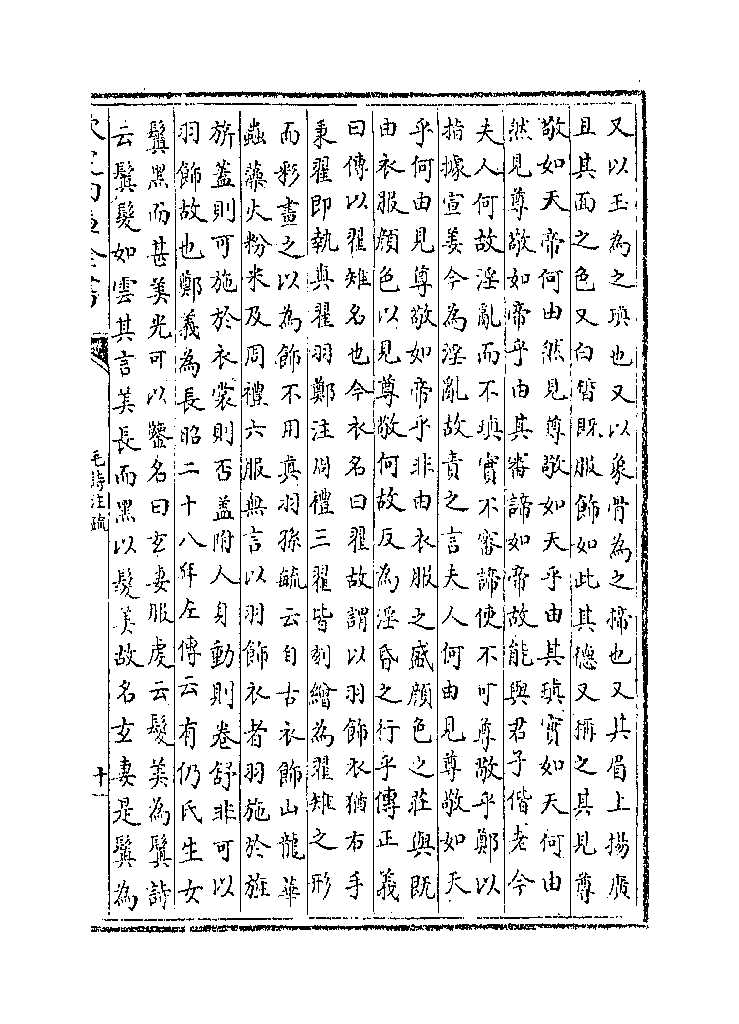 又以玉為之瑱也又以象骨為之揥也又其眉上揚廣
且其面之色又白皙既服飾如此其德又稱之其見尊
敬如天帝何由然見尊敬如天乎由其瑱實如天何由
然見尊敬如帝乎由其審諦如帝故能與君子偕老今
夫人何故淫亂而不瑱實不審諦使不可尊敬乎鄭以
指據宣姜今為淫亂故責之言夫人何由見尊敬如天
乎何由見尊敬如帝乎非由衣服之盛顔色之莊與既
由衣服顔色以見尊敬何故反為淫昏之行乎傳正義
曰傳以翟雉名也今衣名曰翟故謂以羽飾衣猶右手
秉翟即執真翟羽鄭注周禮三翟皆刻繒為翟雉之形
而彩畫之以為飾不用真羽孫毓云自古衣飾山龍華
蟲藻火粉米及周禮六服無言以羽飾衣者羽施於旌
旂蓋則可施於衣裳則否蓋附人身動則卷舒非可以
羽飾故也鄭義為長昭二十八年左傳云有仍氏生女
鬒黑而甚美光可以鑒名曰玄妻服虔云髮美為鬒詩
云鬒髮如雲其言美長而黑以髮美故名玄妻是鬒為
毛詩注疏
十一